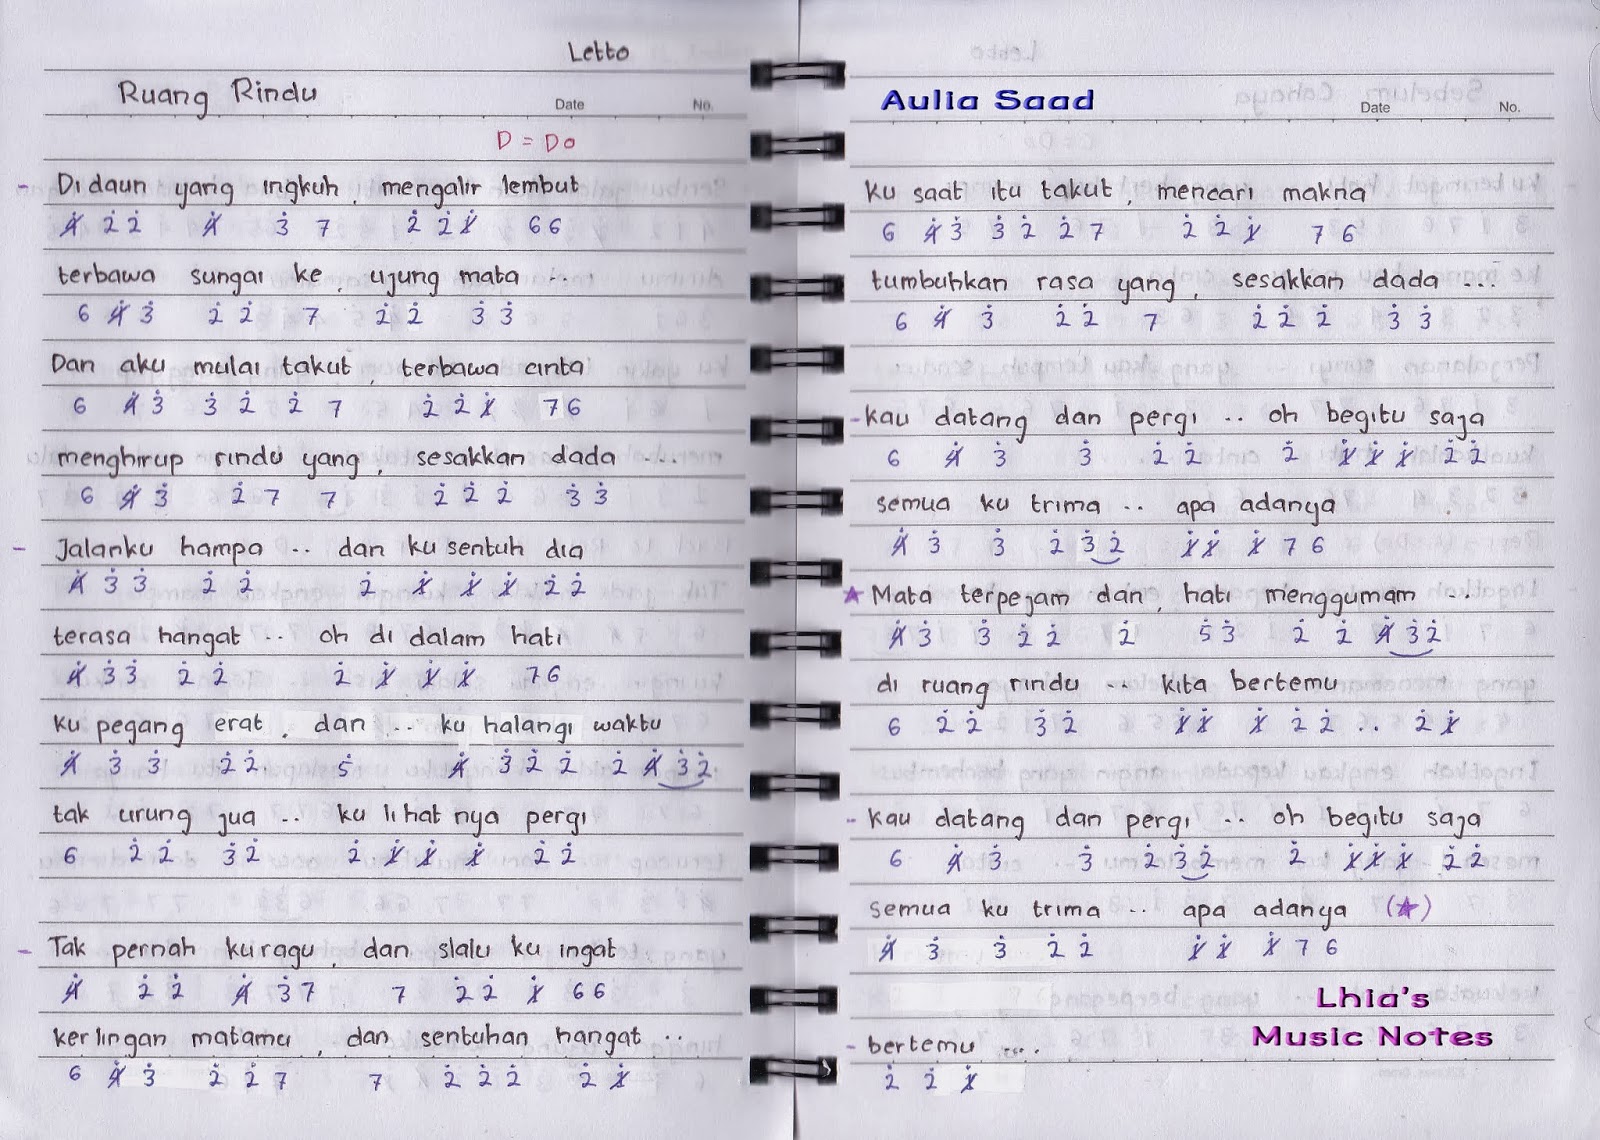 Letto
Ruang Rindu
Date No.
D = Do
- Di daun yang ingkuh, mengalir lembut
4̸̇ 2̇ 2̇ 4̸̇ 3̇ 7 2̇ 2̇ 1̸̇ 6 6
terbawa sungai ke, ujung mata ...
6 4̸̇ 3̇ 2̇ 2̇ 7 2̇ 2̇ 3̇ 3̇
Dan aku mulai takut, terbawa cinta
6 4̸̇ 3̇ 3̇ 2̇ 2̇ 7 2̇ 2̇ 1̸̇ 7 6
menghirup rindu yang, sesakkan dada ...
6 4̸̇ 3̇ 2̇ 7 7 2̇ 2̇ 2̇ 3̇ 3̇
- Jalanku hampa .. dan ku sentuh dia
4̸̇ 3̇ 3̇ 2̇ 2̇ 2̇ 1̸̇ 1̸̇ 1̸̇ 2̇ 2̇
terasa hangat .. oh di dalam hati
4̸̇ 3̇ 3̇ 2̇ 2̇ 2̇ 1̸̇ 1̸̇ 1̸̇ 7 6
ku pegang erat, dan ... ku halangi waktu
4̸̇ 3̇ 3̇ 2̇ 2̇ 5̇ 4̸̇ 3̇ 2̇ 2̇ 2̇ 4̸̇ 3̇ 2̇
tak urung jua .. ku lihat nya pergi
6 2̇ 2̇ 3̇ 2̇ 2̇ 1̸̇ 1̸̇ 1̸̇ 2̇ 2̇
- Tak pernah ku ragu, dan slalu ku ingat
4̸̇ 2̇ 2̇ 4̸̇ 3̇ 7 7 2̇ 2̇ 1̸̇ 6 6
kerlingan matamu, dan sentuhan hangat ..
6 4̸̇ 3̇ 2̇ 2̇ 7 7 2̇ 2̇ 2̇ 2̇ 1̸̇
Aulia Saad
Date No.
ku saat itu takut, mencari makna
6 4̸̇ 3̇ 3̇ 2̇ 2̇ 7 2̇ 2̇ 1̸̇ 7 6
tumbuhkan rasa yang, sesakkan dada ...
6 4̸̇ 3̇ 2̇ 2̇ 7 2̇ 2̇ 2̇ 3̇ 3̇
- kau datang dan pergi .. oh begitu saja
6 4̸̇ 3̇ 3̇ 2̇ 2̇ 2̇ 1̸̇ 1̸̇ 1̸̇ 2̇ 2̇
semua ku trima .. apa adanya
4̸̇ 3̇ 3̇ 2̇ 3̇ 2̇ 1̸̇ 1̸̇ 1̸̇ 7 6
★ Mata terpejam dan, hati menggumam ...
4̸̇ 3̇ 3̇ 2̇ 2̇ 2̇ 5̇ 3̇ 2̇ 2̇ 4̸̇ 3̇ 2̇
di ruang rindu ... kita bertemu
6 2̇ 2̇ 3̇ 2̇ 1̸̇ 1̸̇ 1̸̇ 2̇ 2̇ .. 2̇ 1̸̇
- kau datang dan pergi .. oh begitu saja
6 4̸̇ 3̇ 3̇ 2̇ 3̇ 2̇ 2̇ 1̸̇ 1̸̇ 1̸̇ 2̇ 2̇
semua ku trima .. apa adanya (★)
4̸̇ 3̇ 3̇ 2̇ 2̇ 1̸̇ 1̸̇ 1̸̇ 7 6
Lhia's
Music Notes
- bertemu ....
2̇ 2̇ 1̸̇